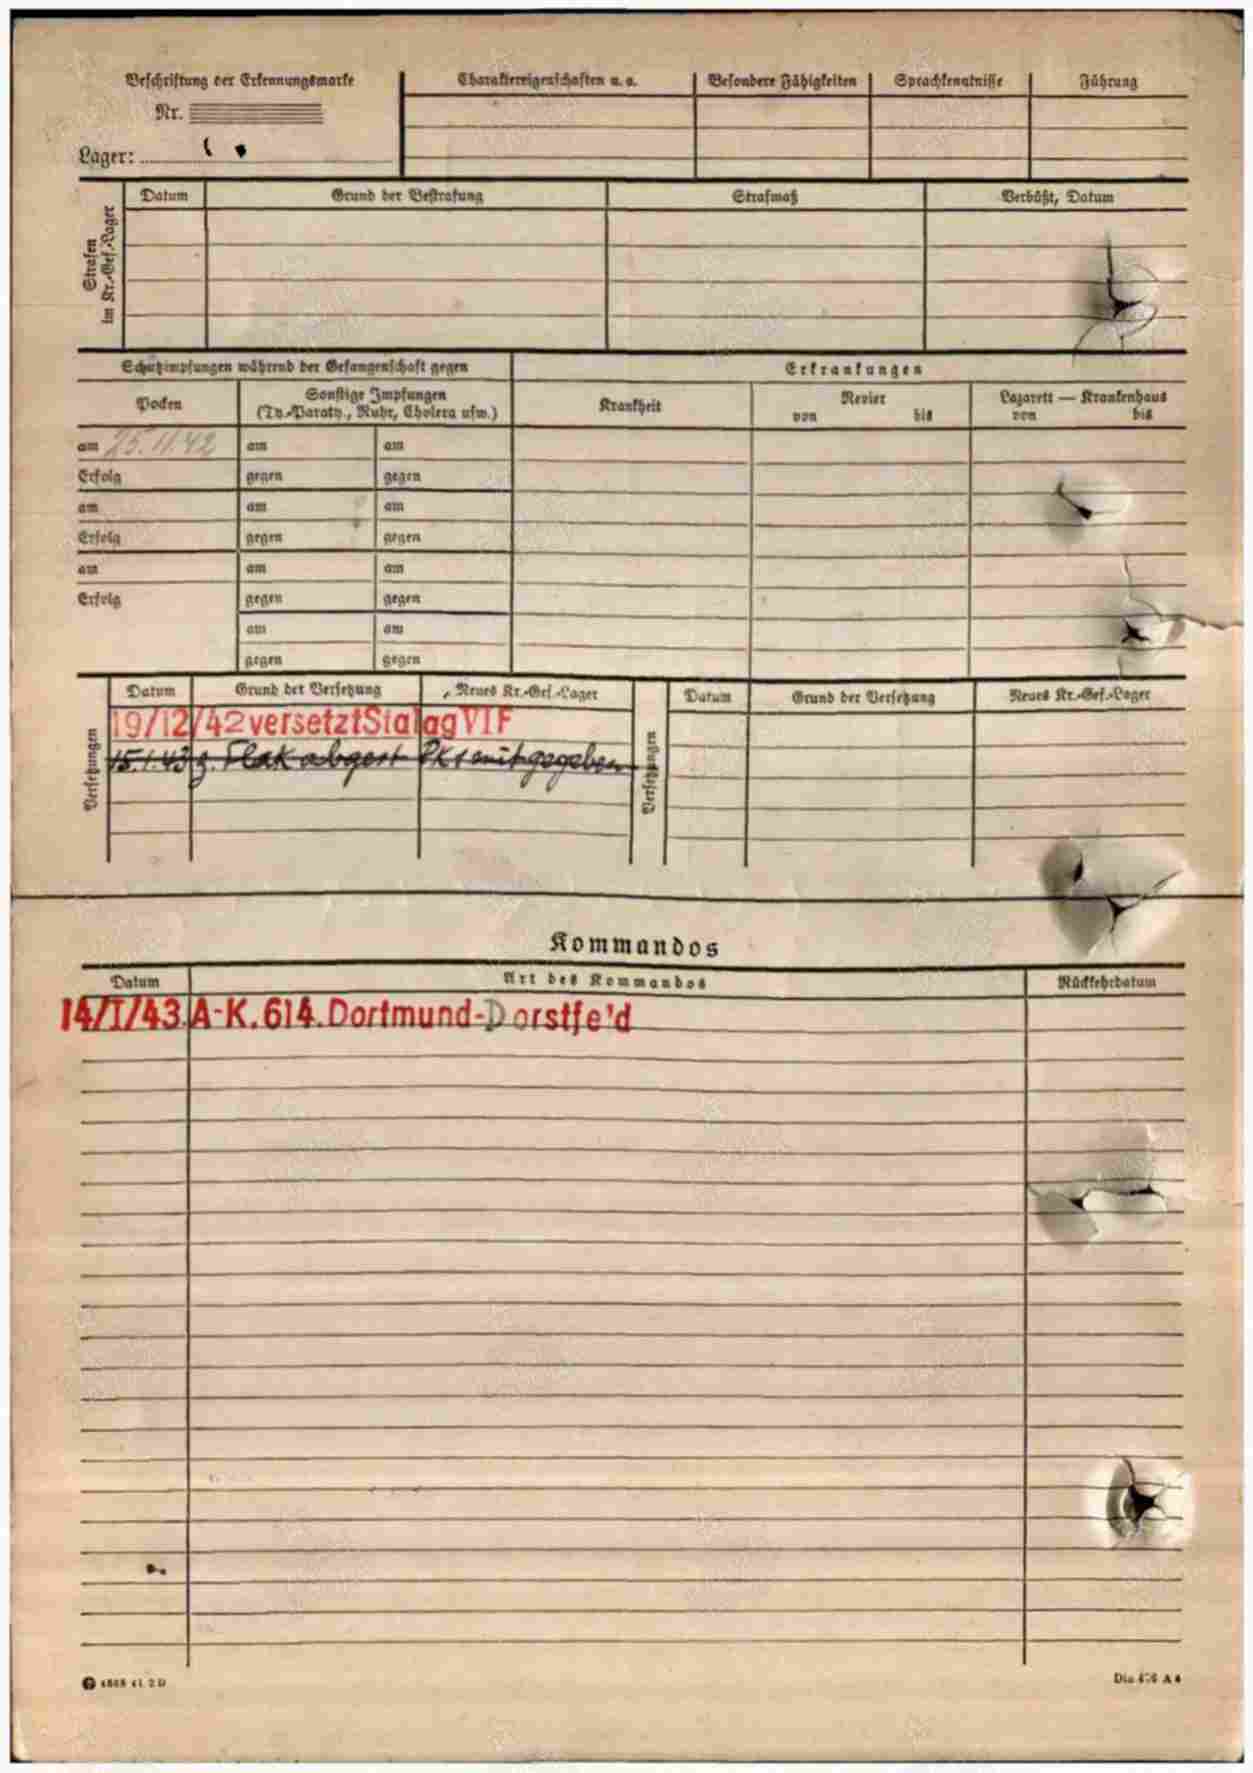 Beschriftung der Erkennungsmarke
Nr.
Lager:
Charaktereigenschaften u. a.
Besondere Fähigkeiten
Sprachkenntnisse
Führung
Strafen
im Kr.-Gef.-Lager
Datum
Grund der Bestrafung
Strafmaß
Verbüßt, Datum
Schutzimpfungen während der Gefangenschaft gegen
Erkrankungen
Pocken
Sonstige Impfungen
(Ty.-Paraty., Ruhr, Cholera usw.)
Krankheit
Revier
von bis
Lazarett — Krankenhaus
von bis
am 25.11.42 am am
Erfolg gegen gegen
am am am
Erfolg gegen gegen
am am am
Erfolg gegen gegen
am am
gegen gegen
Versetzungen
Datum
Grund der Versetzung
Neues Kr.-Gef.-Lager
Versetzungen
Datum
Grund der Versetzung
Neues Kr.-Gef.-Lager
19/12/42 versetzt Stalag VI F
15.1.43 z. Flak abgest. PK1 mitgegeben
Kommandos
Datum
Art des Kommandos
Rückkehrdatum
14/I/43. A-K. 614. Dortmund-Dorstfe'd
Din 476 A 4